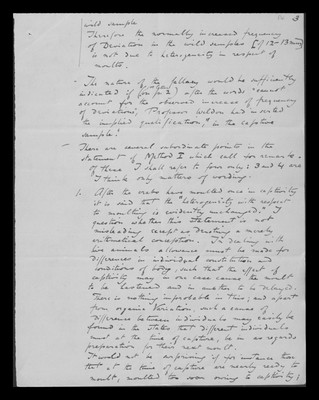 3
wild sample
Therefore the normally increased frequency
of Deviation in the wild samples [of 12-13 mm]
is not due to heterogeneity in respect of
moults.
- The nature of the fallacy would be sufficiently
indicated if after the words "cannot
account for the observed increase of frequency
of deviations", Professor Weldon had inserted
the implied qualification, "in the captive
sample".
- There are several subordinate points in the
statement of Method I which call for remarks.
Of these I shall refer to four only: 3 and 4 are
I think only matters of wording.
1. After the crabs have moulted once in captivity
it is said that the "heterogeneity with respect
to moulting is evidently unchanged". I
question whether this statement is not
misleading except as denoting a merely
arithmetical conception. In dealing with
live animals allowance must be made for
differences in individual constitution and
conditions of body, such that the effect of
captivity may in one case cause the moult
to be hastened and in another to be delayed.
There is nothing improbable in this; and apart
from organic Variation, such a cause of
difference between individuals may easily be
found in the states that different individuals
must at the time of capture, be in as regards
preparation for their next moult.
It would not be surprising if for instance those
that at the time of capture are nearly ready to
moult, moulted too soon owing to captivity;